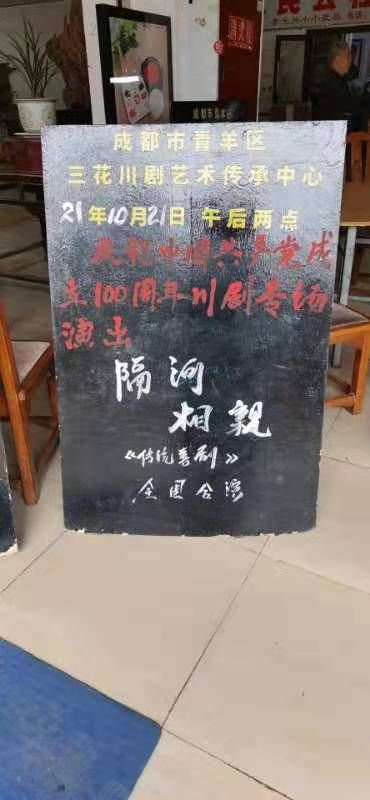 成都市青羊区
三花川剧艺术传承中心
21年10月21日 午后两点
庆祝中国共产党成
立100周年川剧专场
演出
隔河
相親
《传统喜剧》
全团合演
成都市青羊区
李元兴小小藏品